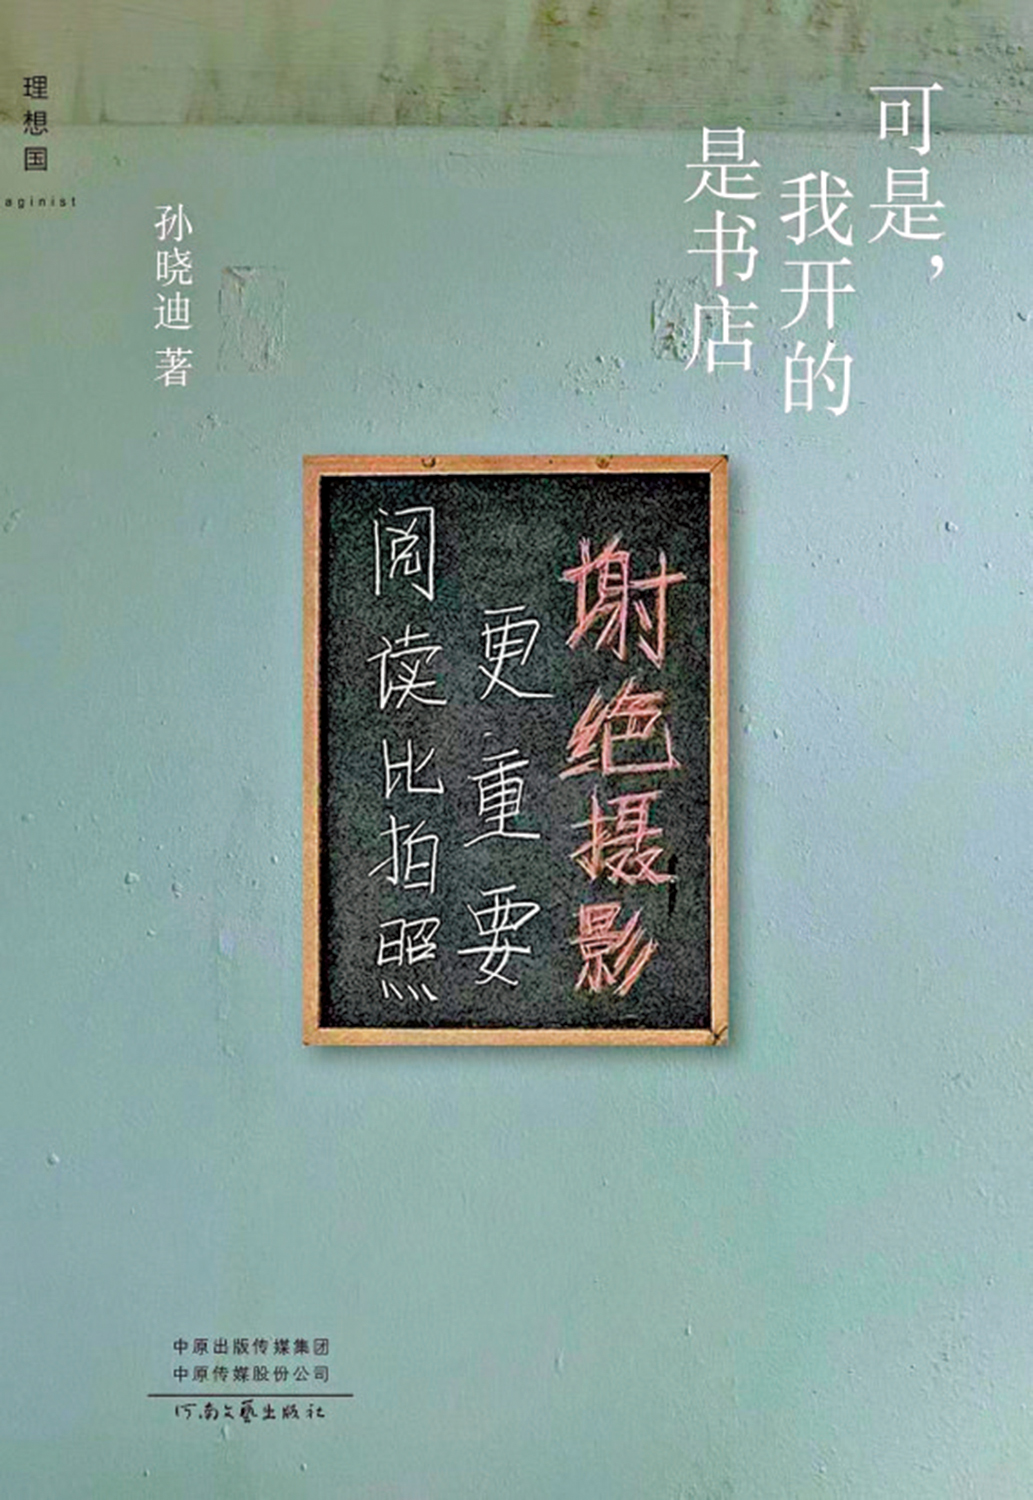 可是，
我开的
是书店
孙晓迪 著
理想国
aginist
谢绝摄影
阅读比拍照
更重要
中原出版传媒集团
中原传媒股份公司
河南文艺出版社